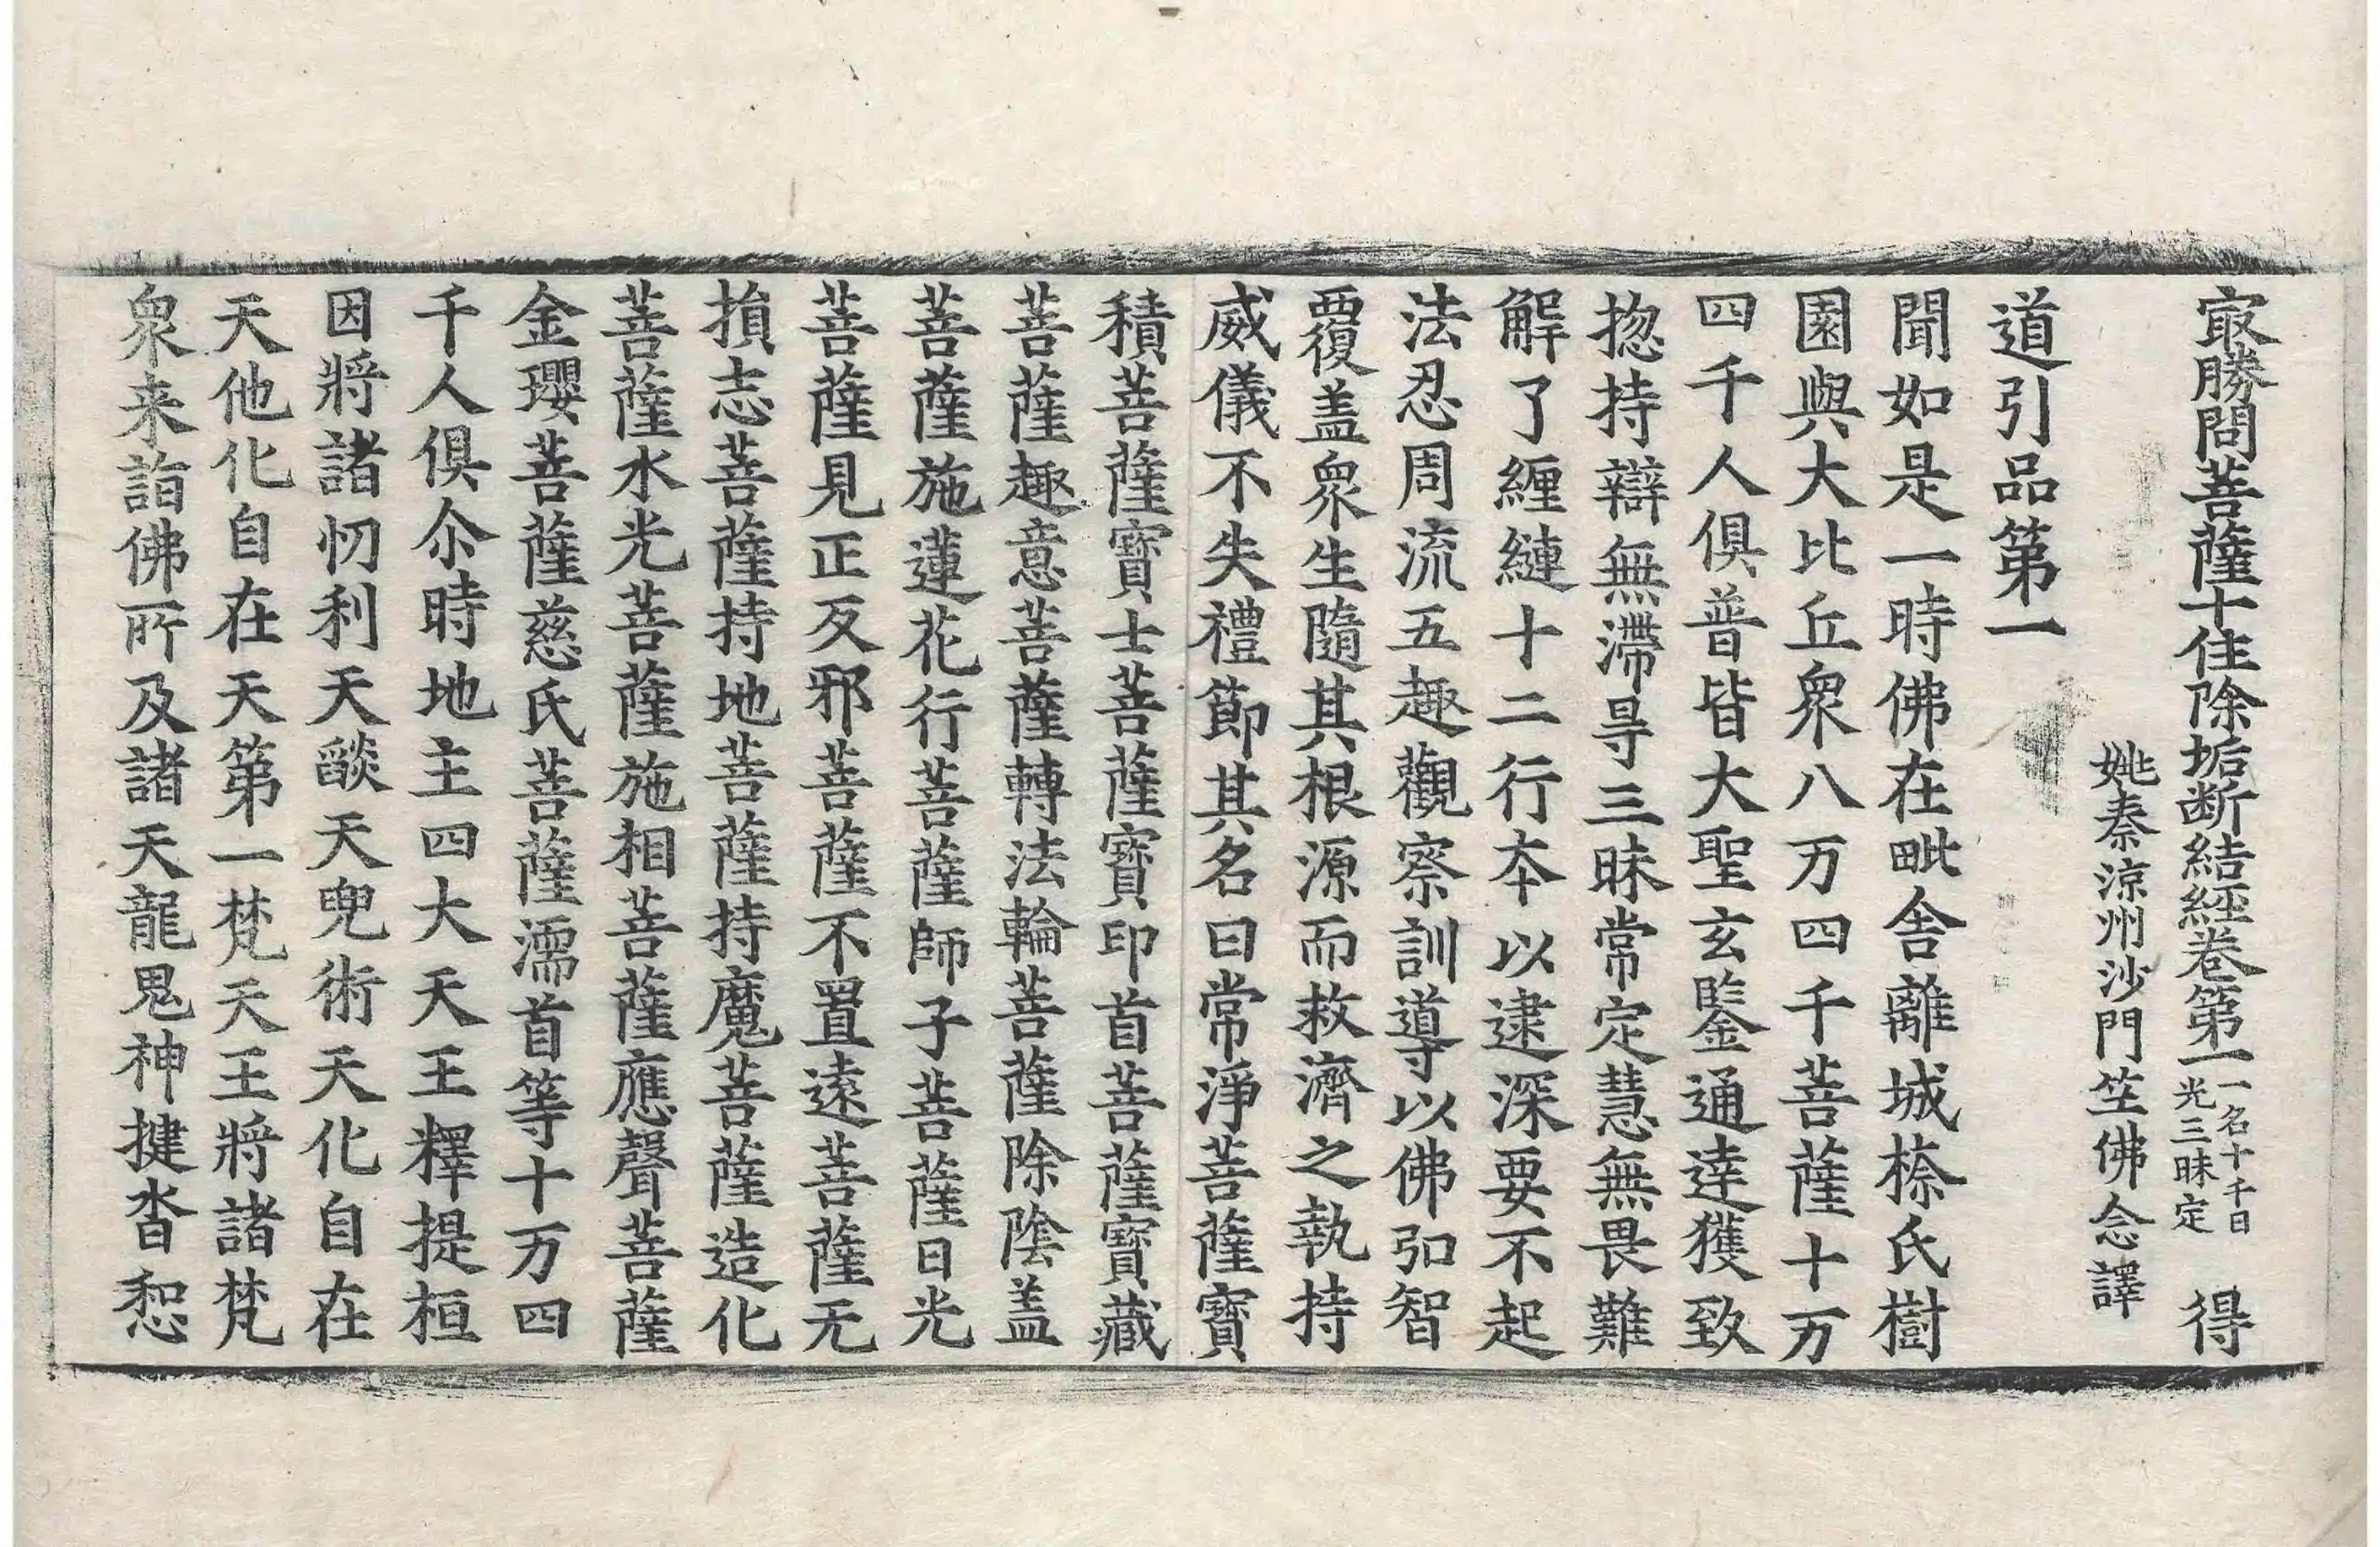 㝡勝問菩薩十住除垢断結經卷第一一名十千日光三昧定　得
姚秦涼州沙門竺佛念譯
道引品第一
聞如是一時佛在毗舍離城㮈氏樹
園與大比丘衆八万四千菩薩十万
四千人俱普皆大聖玄鑒通達獲致
揔持辯無滯㝵三昧常定慧無畏難
解了纏縺十二行夲以逮深要不起
法忍周流五趣觀察訓導以佛弘智
覆盖衆生隨其根源而救濟之執持
威儀不失禮節其名曰常淨菩薩寶
積菩薩寶士菩薩寶印首菩薩寶藏
菩薩趣意菩薩轉法輪菩薩除陰盖
菩薩施蓮花行菩薩師子菩薩日光
菩薩見正反邪菩薩不置遠菩薩无
損志菩薩持地菩薩持魔菩薩造化
菩薩水光菩薩施相菩薩應聲菩薩
金瓔菩薩慈氏菩薩濡首等十万四
千人俱尒時地主四大天王釋提桓
因將諸忉利天燄天兜術天化自在
天他化自在天第一梵天王將諸梵
衆来詣佛所及諸天龍鬼神揵沓惒